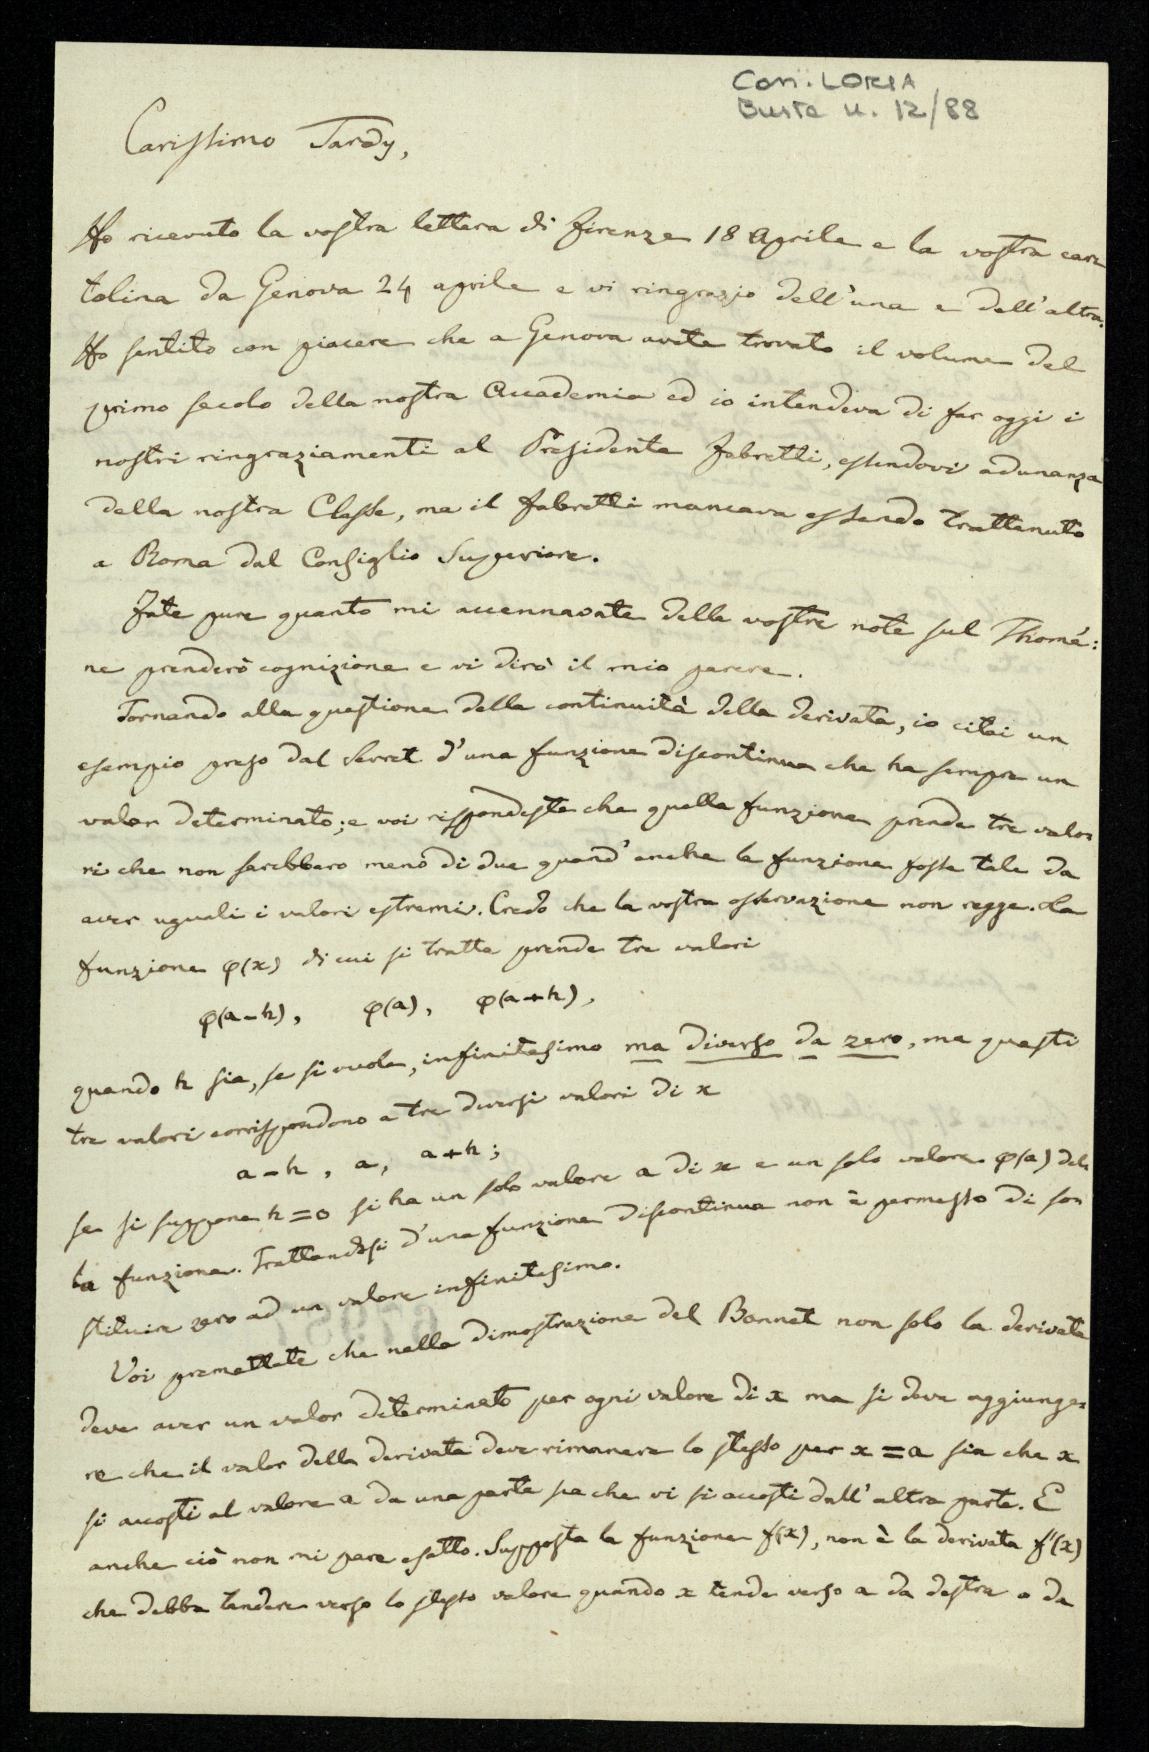 Con. LORIA
Busta n. 12/88
Carissimo Tardy,
Ho ricevuto la vostra lettera di Firenze 18 Aprile e la vostra car=
tolina da Genova 24 aprile e vi ringrazio dell'una e dell'altra.
Ho sentito con piacere che a Genova avete trovato il volume del
primo secolo della nostra Accademia ed io intendeva di far oggi i
nostri ringraziamenti al Presidente Fabretti, essendovi adunanza
della nostra Classe, ma il Fabretti mancava essendo trattenuto
a Roma dal Consiglio Superiore.
Fate pure quanto mi accennavate delle vostre note sul Thomé:
ne prenderò cognizione e vi dirò il mio parere.
Tornando alla questione della continuità della derivata, io citai un
esempio preso dal Serret d'una funzione discontinua che ha sempre un
valor determinato; e voi rispondeste che quella funzione prende tre valo=
ri che non sarebbero meno di due quand'anche la funzione fosse tale da
aver uguali i valori estremi. Credo che la vostra osservazione non regge. La
funzione φ(x) di cui si tratta prende tre valori
φ(a-h), φ(a), φ(a+h),
quando h sia, se si vuole, infinitesimo ma diverso da zero, ma questi
tre valori corrispondono a tre diversi valori di x
a-h, a, a+h;
se si suppone h=0 si ha un solo valore a di x e un solo valore φ(a) del=
la funzione. Trattandosi d'una funzione discontinua non è permesso di so=
stituire zero ad un valore infinitesimo.
67957
Voi premettete che nella dimostrazione del Bonnet non solo la derivata
deve aver un valor determinato per ogni valore di x ma si deve aggiunge=
re che il valor della derivata deve rimanere lo stesso per x=a sia che x
si accosti al valore a da una parte sia che vi si accosti dall'altra parte. E
anche ciò non mi pare esatto. Supposta la funzione f(x), non è la derivata f'(x)
che debba tendere verso lo stesso valore quando x tende verso a da destra o da